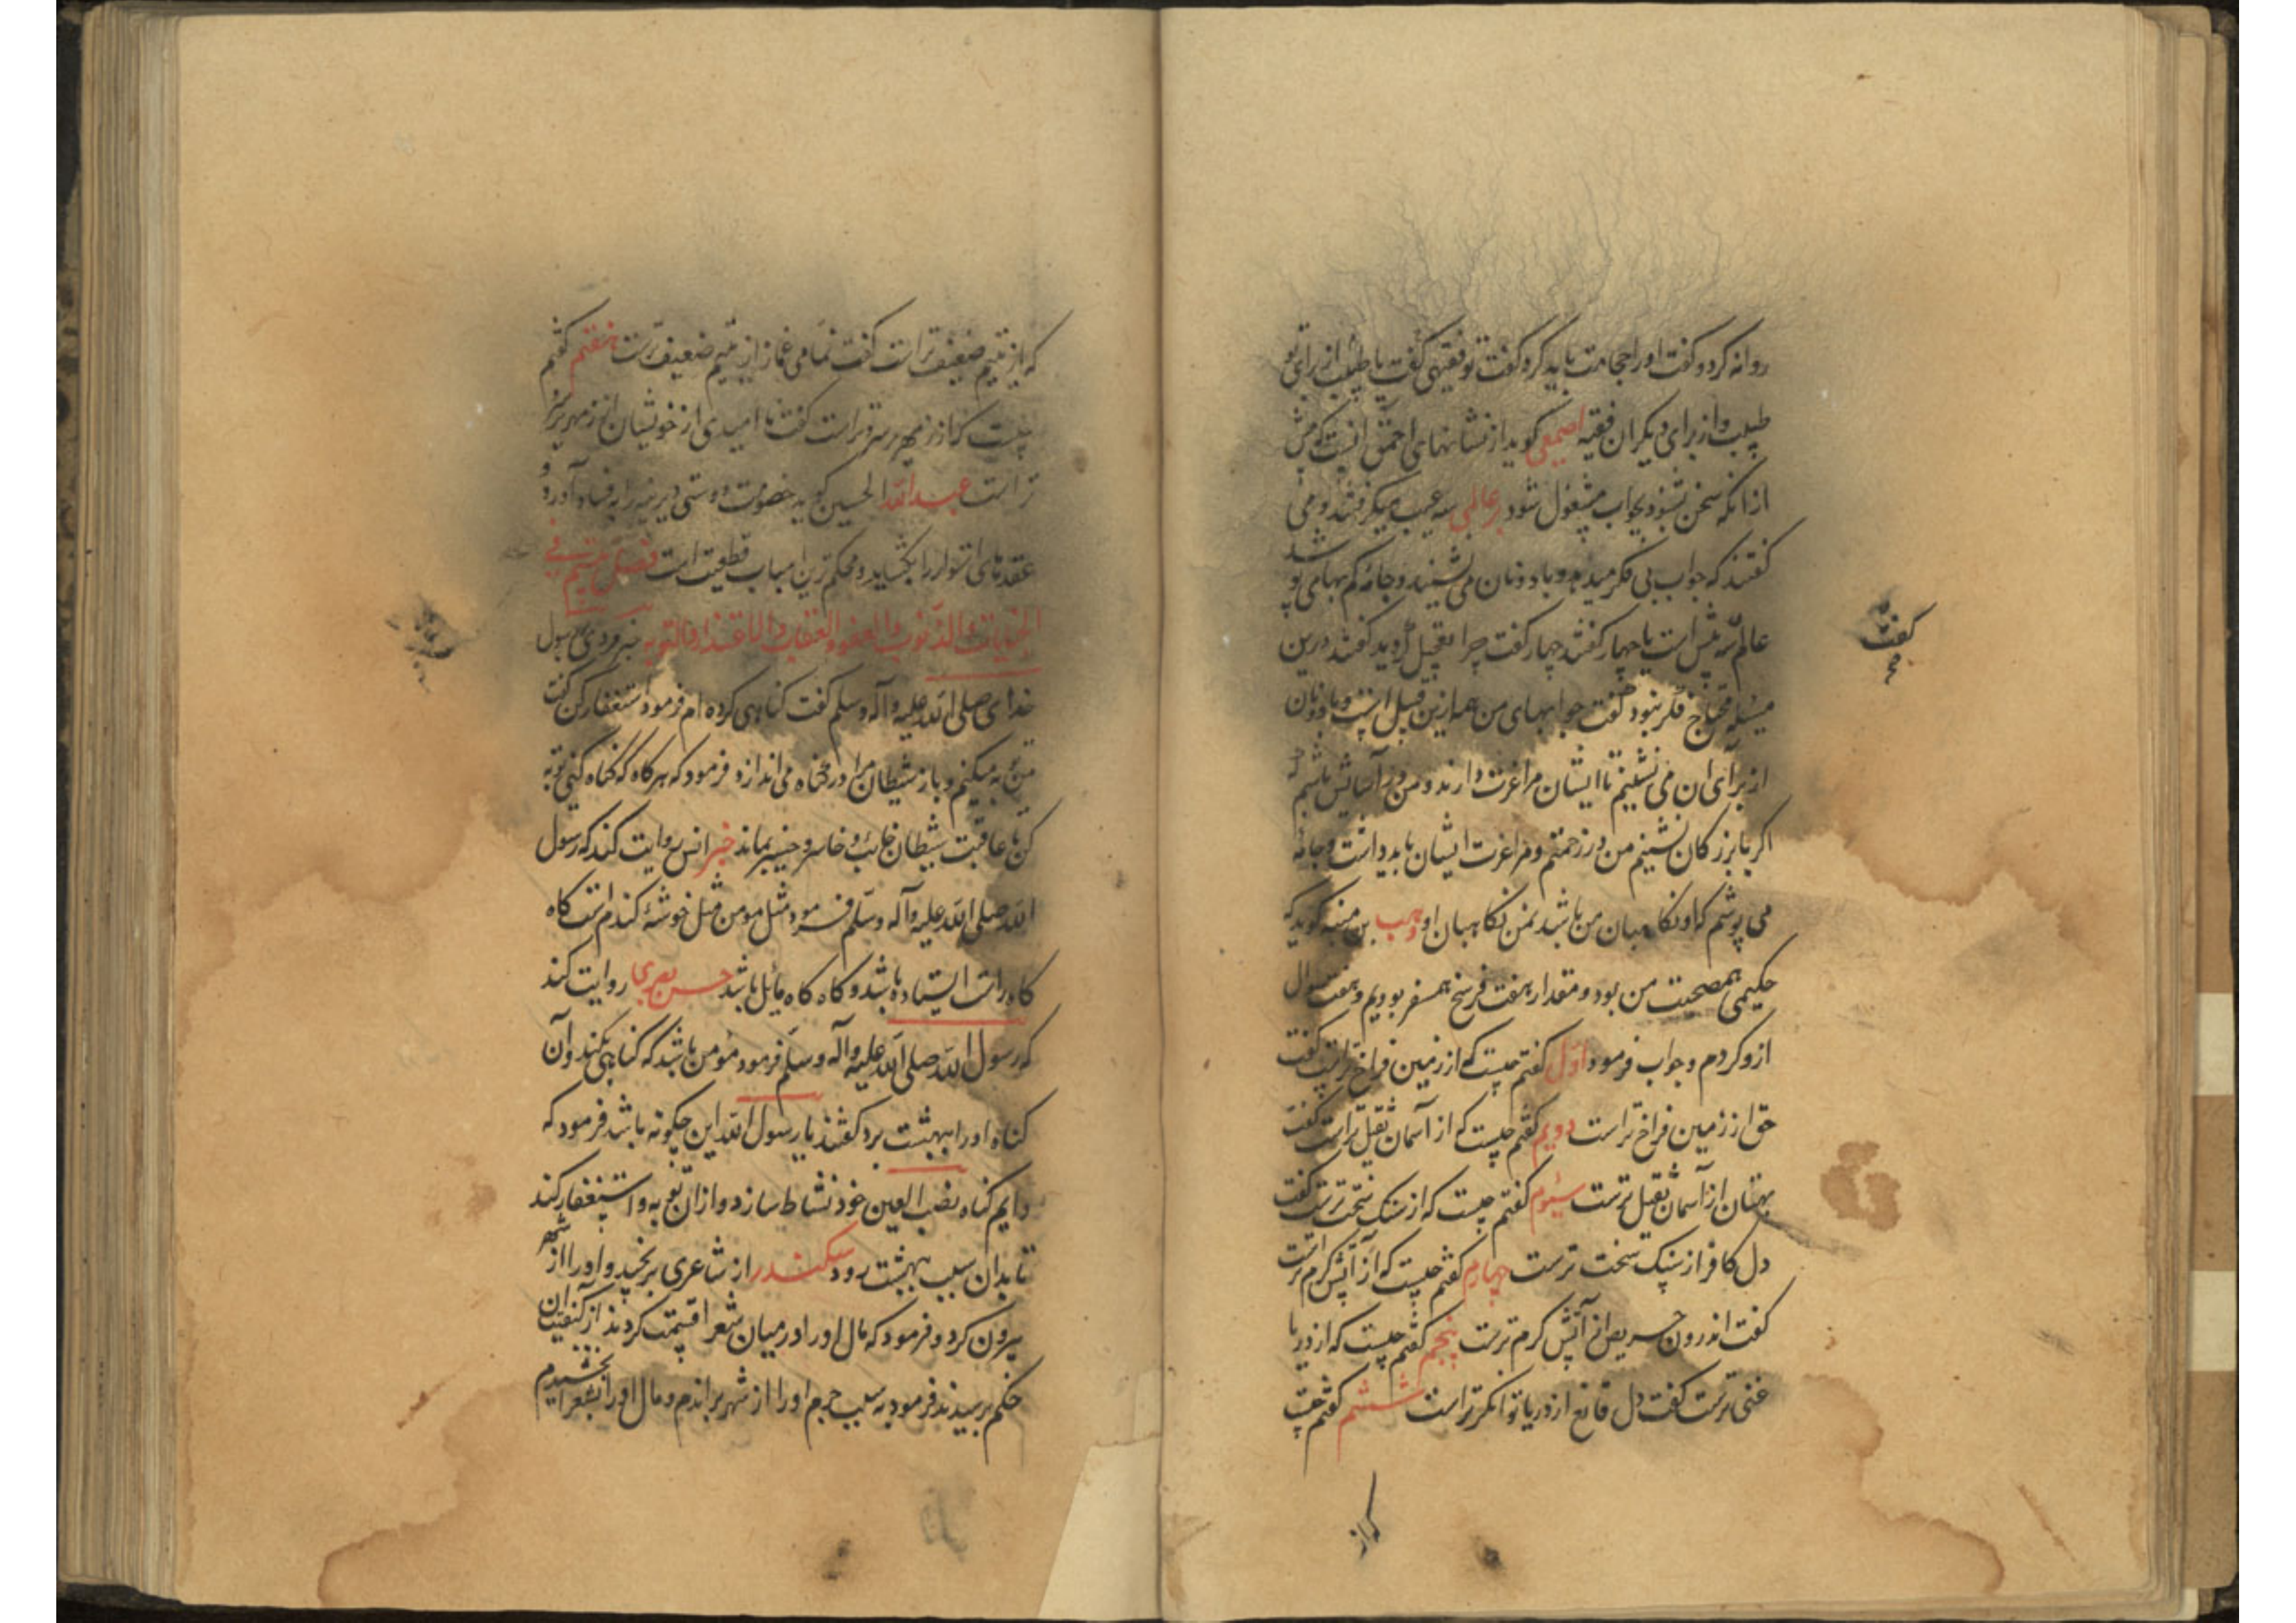 روانه کرد و گفت او را حجامت باید کرد گفت تو فقیهی گفت یا طبیب از برای تو
طبیب و از برای دیگران فقیه اصمعی گوید از نشانهای احمق انست که پیش
از انکه سخن بشنود بجواب مشغول شود بر عالمی سه عیب میگرفتند و می
گفتند که جواب بی فکر میدهد و با دونان می نشیند و جامه کم بهامی پوشد
عالم سه پیش است یا چهار گفتند چهار گفت چرا تعجیل کردید گفتند درین
مسئله محتاج فکر نبود گفت جوابهای من همه ازین قبیل است و با دونان
از برای ان می نشینم تا ایشان مرا عزت دارند و من در آسایش باشم که
اگر با بزرگان نشینم من در زحمتم و مرا عزت ایشان باید داشت و جامه
می پوشم که او نگاهبان من باشد نه من نگاهبان او وهب بن منبه گوید که
حکیمی همصحبت من بود و مقدار هفت فرسخ همسفر بودیم و هفت سوال
ازو کردم و جواب فرمود اول گفتم چیست که از زمین فراخ تر است گفت
حق از زمین فراخ تر است دویم گفتم چیست که از آسمان ثقیل تر است گفت
بهتان از آسمان ثقیل ترست سیوم گفتم چیست که از سنک سخت ترست گفت
دل کافر از سنک سخت ترست چهارم گفتم چیست که از آتش کرم تر است
گفت اندرون حریص از آتش کرم ترست پنجم گفتم چیست که از دریا
غنی ترست گفت دل قانع از دریا توانکرتر است ششم گفتم چیست
که از
گفت
که از یتیم ضعیف تر است گفت نمامی غماز از یتیم ضعیف ترست هفتم گفتم
چیست که از زمهریر سردتر است گفت نا امیدی از خویشان از زمهریر سرد
تر است عبدالله الحسین گوید خصومت دوستی دیرینه را به فساد آورد و
عقدهای استوار را بکشاید و محکم ترین اسباب قطعیت است فصل بیستم فی
الجنایات و الذنوب و العفو و العقاب و الاعتذار و التوبه خبر مردی رسول
خدای صلی الله علیه و آله و سلم گفت کناهی کرده ام فرمود استغفار کن گفت
من توبه میکنم و باز شیطان مرا در کناه می اندازد فرمود که هرکاه که کناه کنی توبه
کن تا عاقبت شیطان خایب و خاسر و خسیر بماند خبر انس روایت کند که رسول
الله صلی الله علیه و آله و سلم فرمود مثل مومن مثل خوشه کندم است کاه
کاه راست ایستاده باشد و کاه کاه مایل باشد حسن بصری روایت کند
که رسول الله صلی الله علیه و آله و سلم فرمود مومن باشد که کناهی بکند و آن
کناه او را ببهشت برد گفتند یا رسول الله این چکونه باشد فرمود که
دایم کناه نصب العین خود نشاط سازد و ازان توبه و استغفار کند
تا بدان سبب ببهشت رود سکندر از شاعری برنجید و او را از شهر
بیرون کرد و فرمود که مال او را در میان شعرا قسمت کردند از کیفیت آن
حکم پرسیدند فرمود به سبب جرم او را از شهر براندم و مال او را بشعرا بخشیدم